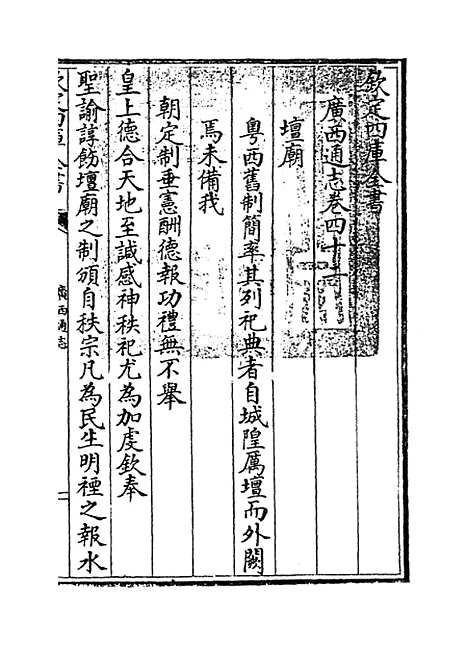 欽定四庫全書
廣西通志卷四十二
壇廟
粤西舊制簡率其列祀典者自城隍厲壇而外闕
焉未備我
朝定制垂憲酬德報功禮無不舉
皇上德合天地至誠感神秩祀尤為加虔欽奉
聖諭諄飭壇廟之制頒自秩宗凡為民生明禋之報水
欽定四庫全書
廣西通志
一